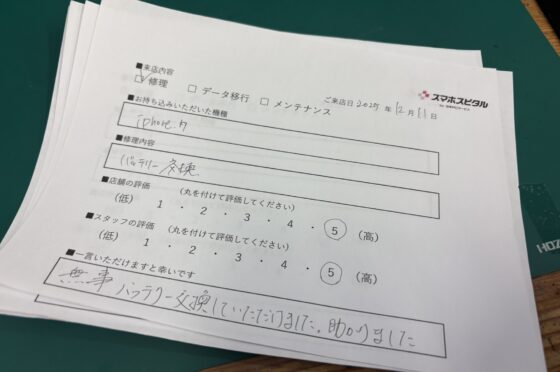 ■来店内容
☑ 修理 □ データ移行 □ メンテナンス
スマホスピタル
ご来店日 2025 年 12 月 11 日
■お持ち込みいただいた機種
iphone
■修理内容
バッテリー交換
■店舗の評価 (丸を付けて評価してください)
(低) 1 ・ 2 ・ 3 ・ 4 ・ 5 (高)
■スタッフの評価 (丸を付けて評価してください)
(低) 1 ・ 2 ・ 3 ・ 4 ・ 5 (高)
■一言いただけますと幸いです
無事バッテリー交換していただけました。助かりました
HOZ